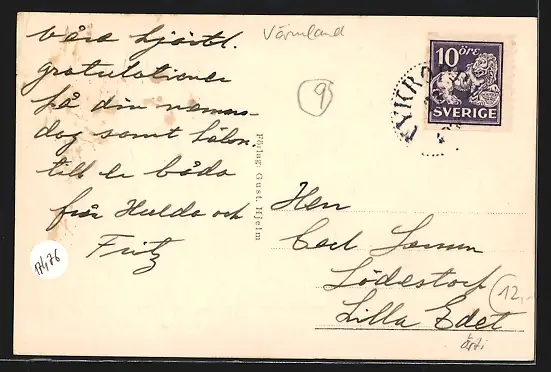 våra hjärtl.
gratulationer
på din namns-
dag samt hälsn.
till er båda
från Hulda och
Fritz
Värmland
9
10 ÖRE
SVERIGE
Förlag: Gust. Hjelm
Herr
Carl
Lödestorf
Lilla Edet
12,-
17476